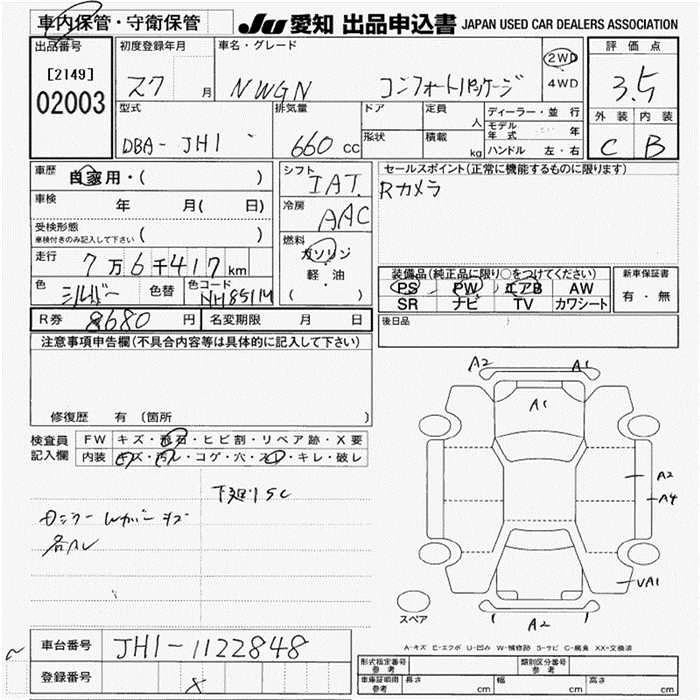 車内保管・守衛保管 JU 愛知 出品申込書 JAPAN USED CAR DEALERS ASSOCIATION
出品番号 初度登録年月 車名・グレード 評価点
[2149] 27 月 NWGN コンフォートパッケージ 2WD
4WD 3.5
02003 型式 排気量 ドア 定員 人 ディーラー・並行 外装 内装
DBA-JH1 660 cc 形状 積載 kg モデル年式 年
ハンドル 左・右 C B
車歴 自家用・( ) シフト IAT セールスポイント(正常に機能するものに限ります)
車検 年 月( 日) 冷房 AAC Rカメラ
受検形態
車検付きのみ記入して下さい ( ) 燃料 ガソリン
走行 7万6千417km 軽・油 装備品(純正品に限り○をつけてください) 新車保証書
色 シルバー 色替 色コード NH851M ( ) PS PW エアB AW 有・無
SR ナビ TV カワシート
R券 8680円 名変期限 月 日 後日品
注意事項申告欄(不具合内容等は具体的に記入して下さい)
A2 A1
A1
修復歴 有(箇所
検査員 FW キズ・飛石・ヒビ割・リペア跡・X要
記入欄 内装 キズ・汚レ・コゲ・穴・スレ・キレ・破レ
A2
下廻りSC A4
各ヘレ
UA1
スペア A2
A-キズ E-エクボ U-凹み W-補修跡 S-サビ C-腐食 XX-交換済
車台番号 JH1-1122848
登録番号 型式指定番号 参考 類別区分番号 参考
車庫証明用 参考 長さ cm 幅 cm 高さ cm